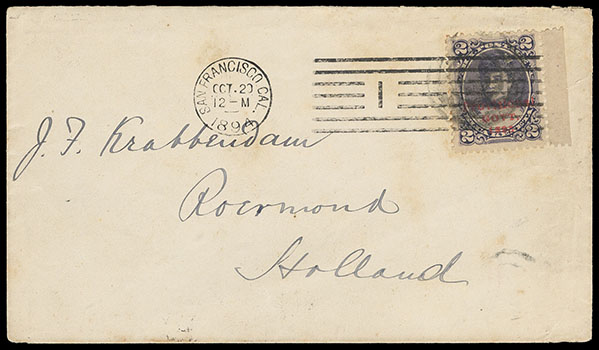 SAN FRANCISCO, CAL.
OCT. 20
12-M
1896
1
2 2
GOVT.
2 2
J. F. Krabbendam
Roermond
Holland